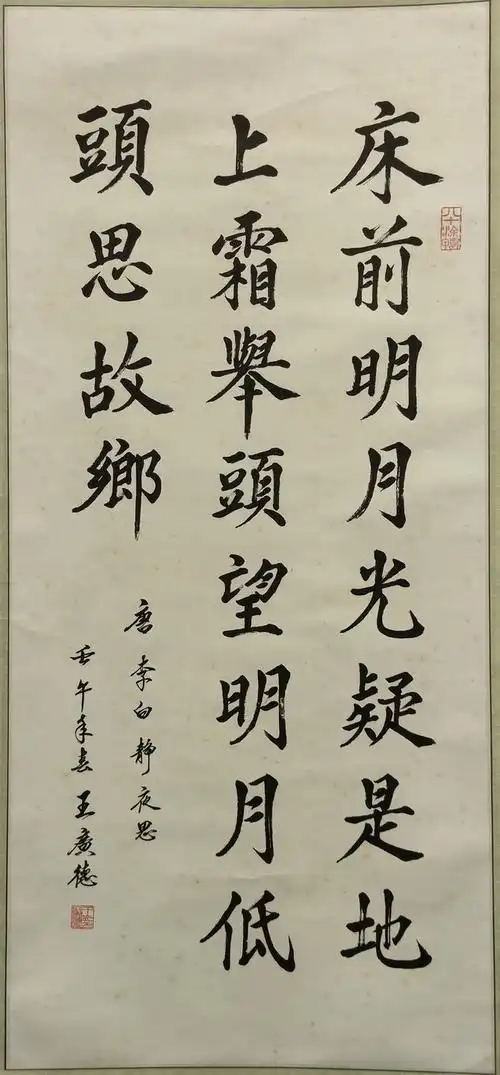 床前明月光疑是地
上霜舉頭望明月低
頭思故鄉
唐李白靜夜思
壬午年春王廣德